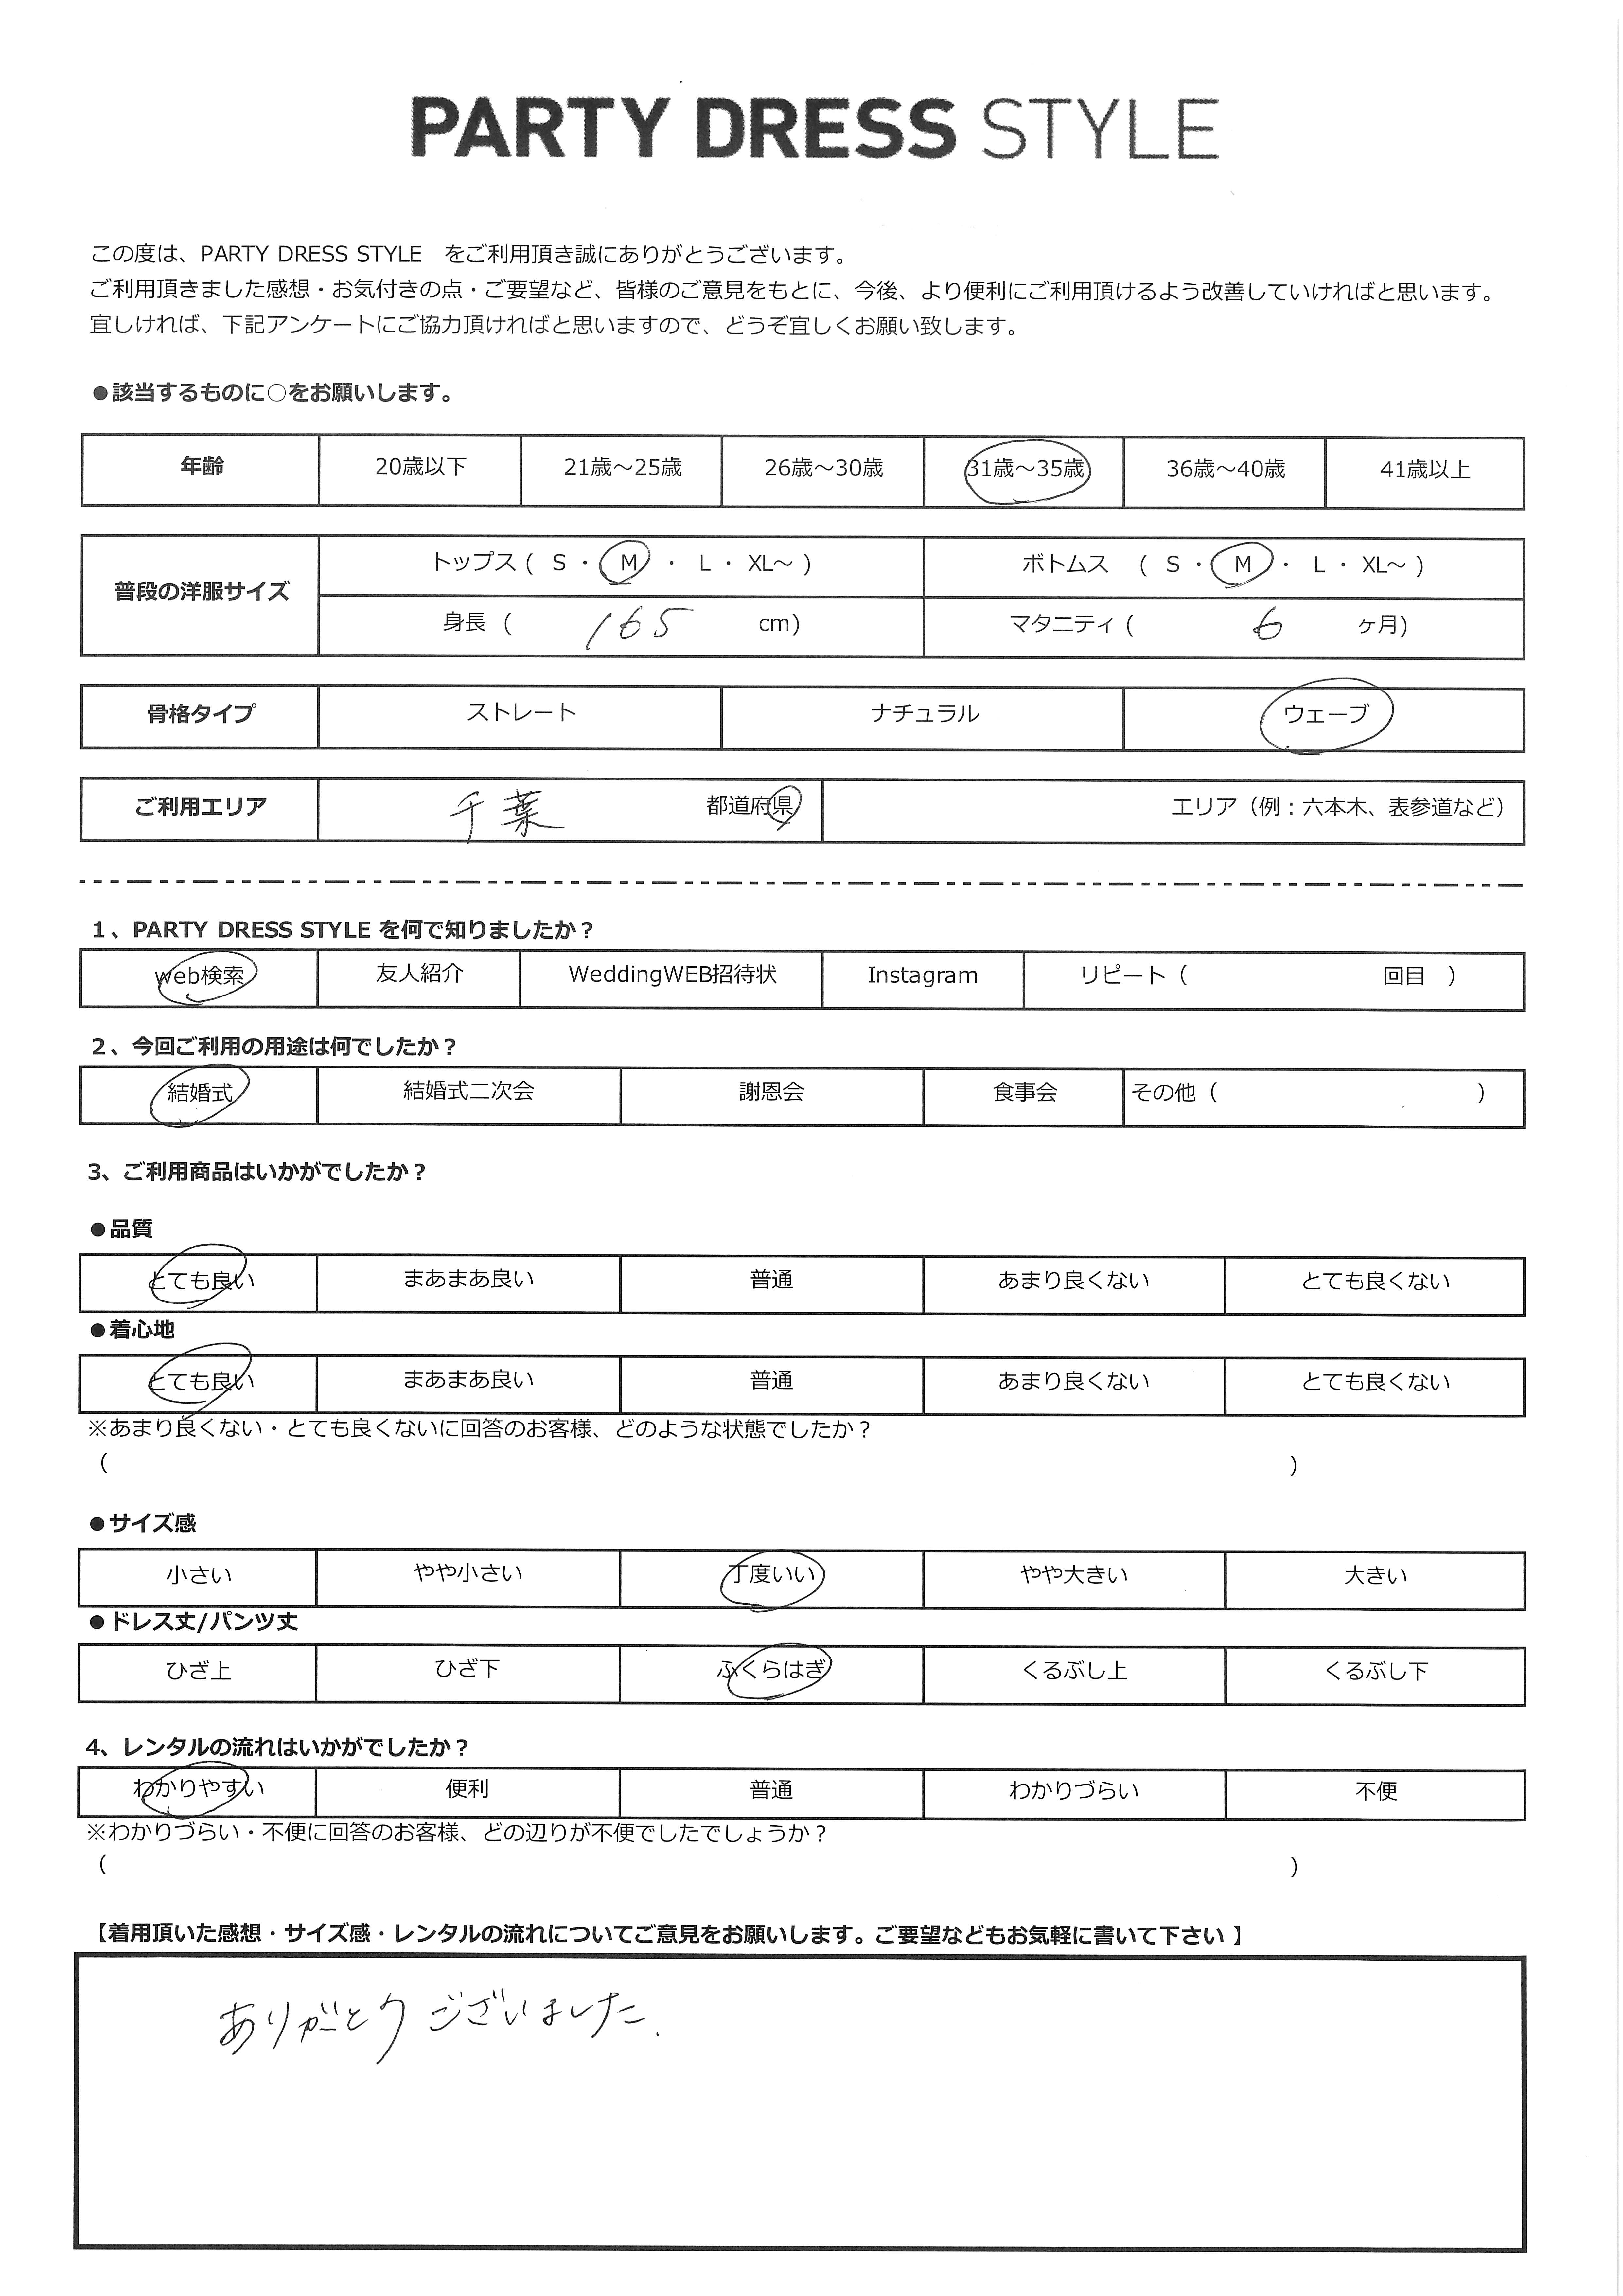 PARTY DRESS STYLE
この度は、PARTY DRESS STYLE　をご利用頂き誠にありがとうございます。
ご利用頂きました感想・お気付きの点・ご要望など、皆様のご意見をもとに、今後、より便利にご利用頂けるよう改善していければと思います。
宜しければ、下記アンケートにご協力頂ければと思いますので、どうぞ宜しくお願い致します。
●該当するものに○をお願いします。
年齢 20歳以下 21歳～25歳 26歳～30歳 31歳～35歳 36歳～40歳 41歳以上
普段の洋服サイズ トップス ( S ・ M ・ L ・ XL～ ) ボトムス ( S ・ M ・ L ・ XL～ )
身長 ( 165 cm) マタニティ ( 6 ヶ月)
骨格タイプ ストレート ナチュラル ウェーブ
ご利用エリア 千葉 都道府県 エリア（例：六本木、表参道など）
1、PARTY DRESS STYLE を何で知りましたか？
web検索 友人紹介 WeddingWEB招待状 Instagram リピート（ 回目 ）
2、今回ご利用の用途は何でしたか？
結婚式 結婚式二次会 謝恩会 食事会 その他（ ）
3、ご利用商品はいかがでしたか？
●品質
とても良い まあまあ良い 普通 あまり良くない とても良くない
●着心地
とても良い まあまあ良い 普通 あまり良くない とても良くない
※あまり良くない・とても良くないに回答のお客様、どのような状態でしたか？
（ ）
●サイズ感
小さい やや小さい 丁度いい やや大きい 大きい
●ドレス丈/パンツ丈
ひざ上 ひざ下 ふくらはぎ くるぶし上 くるぶし下
4、レンタルの流れはいかがでしたか？
わかりやすい 便利 普通 わかりづらい 不便
※わかりづらい・不便に回答のお客様、どの辺りが不便でしたでしょうか？
（ ）
【着用頂いた感想・サイズ感・レンタルの流れについてご意見をお願いします。ご要望などもお気軽に書いて下さい 】
ありがとうございました.